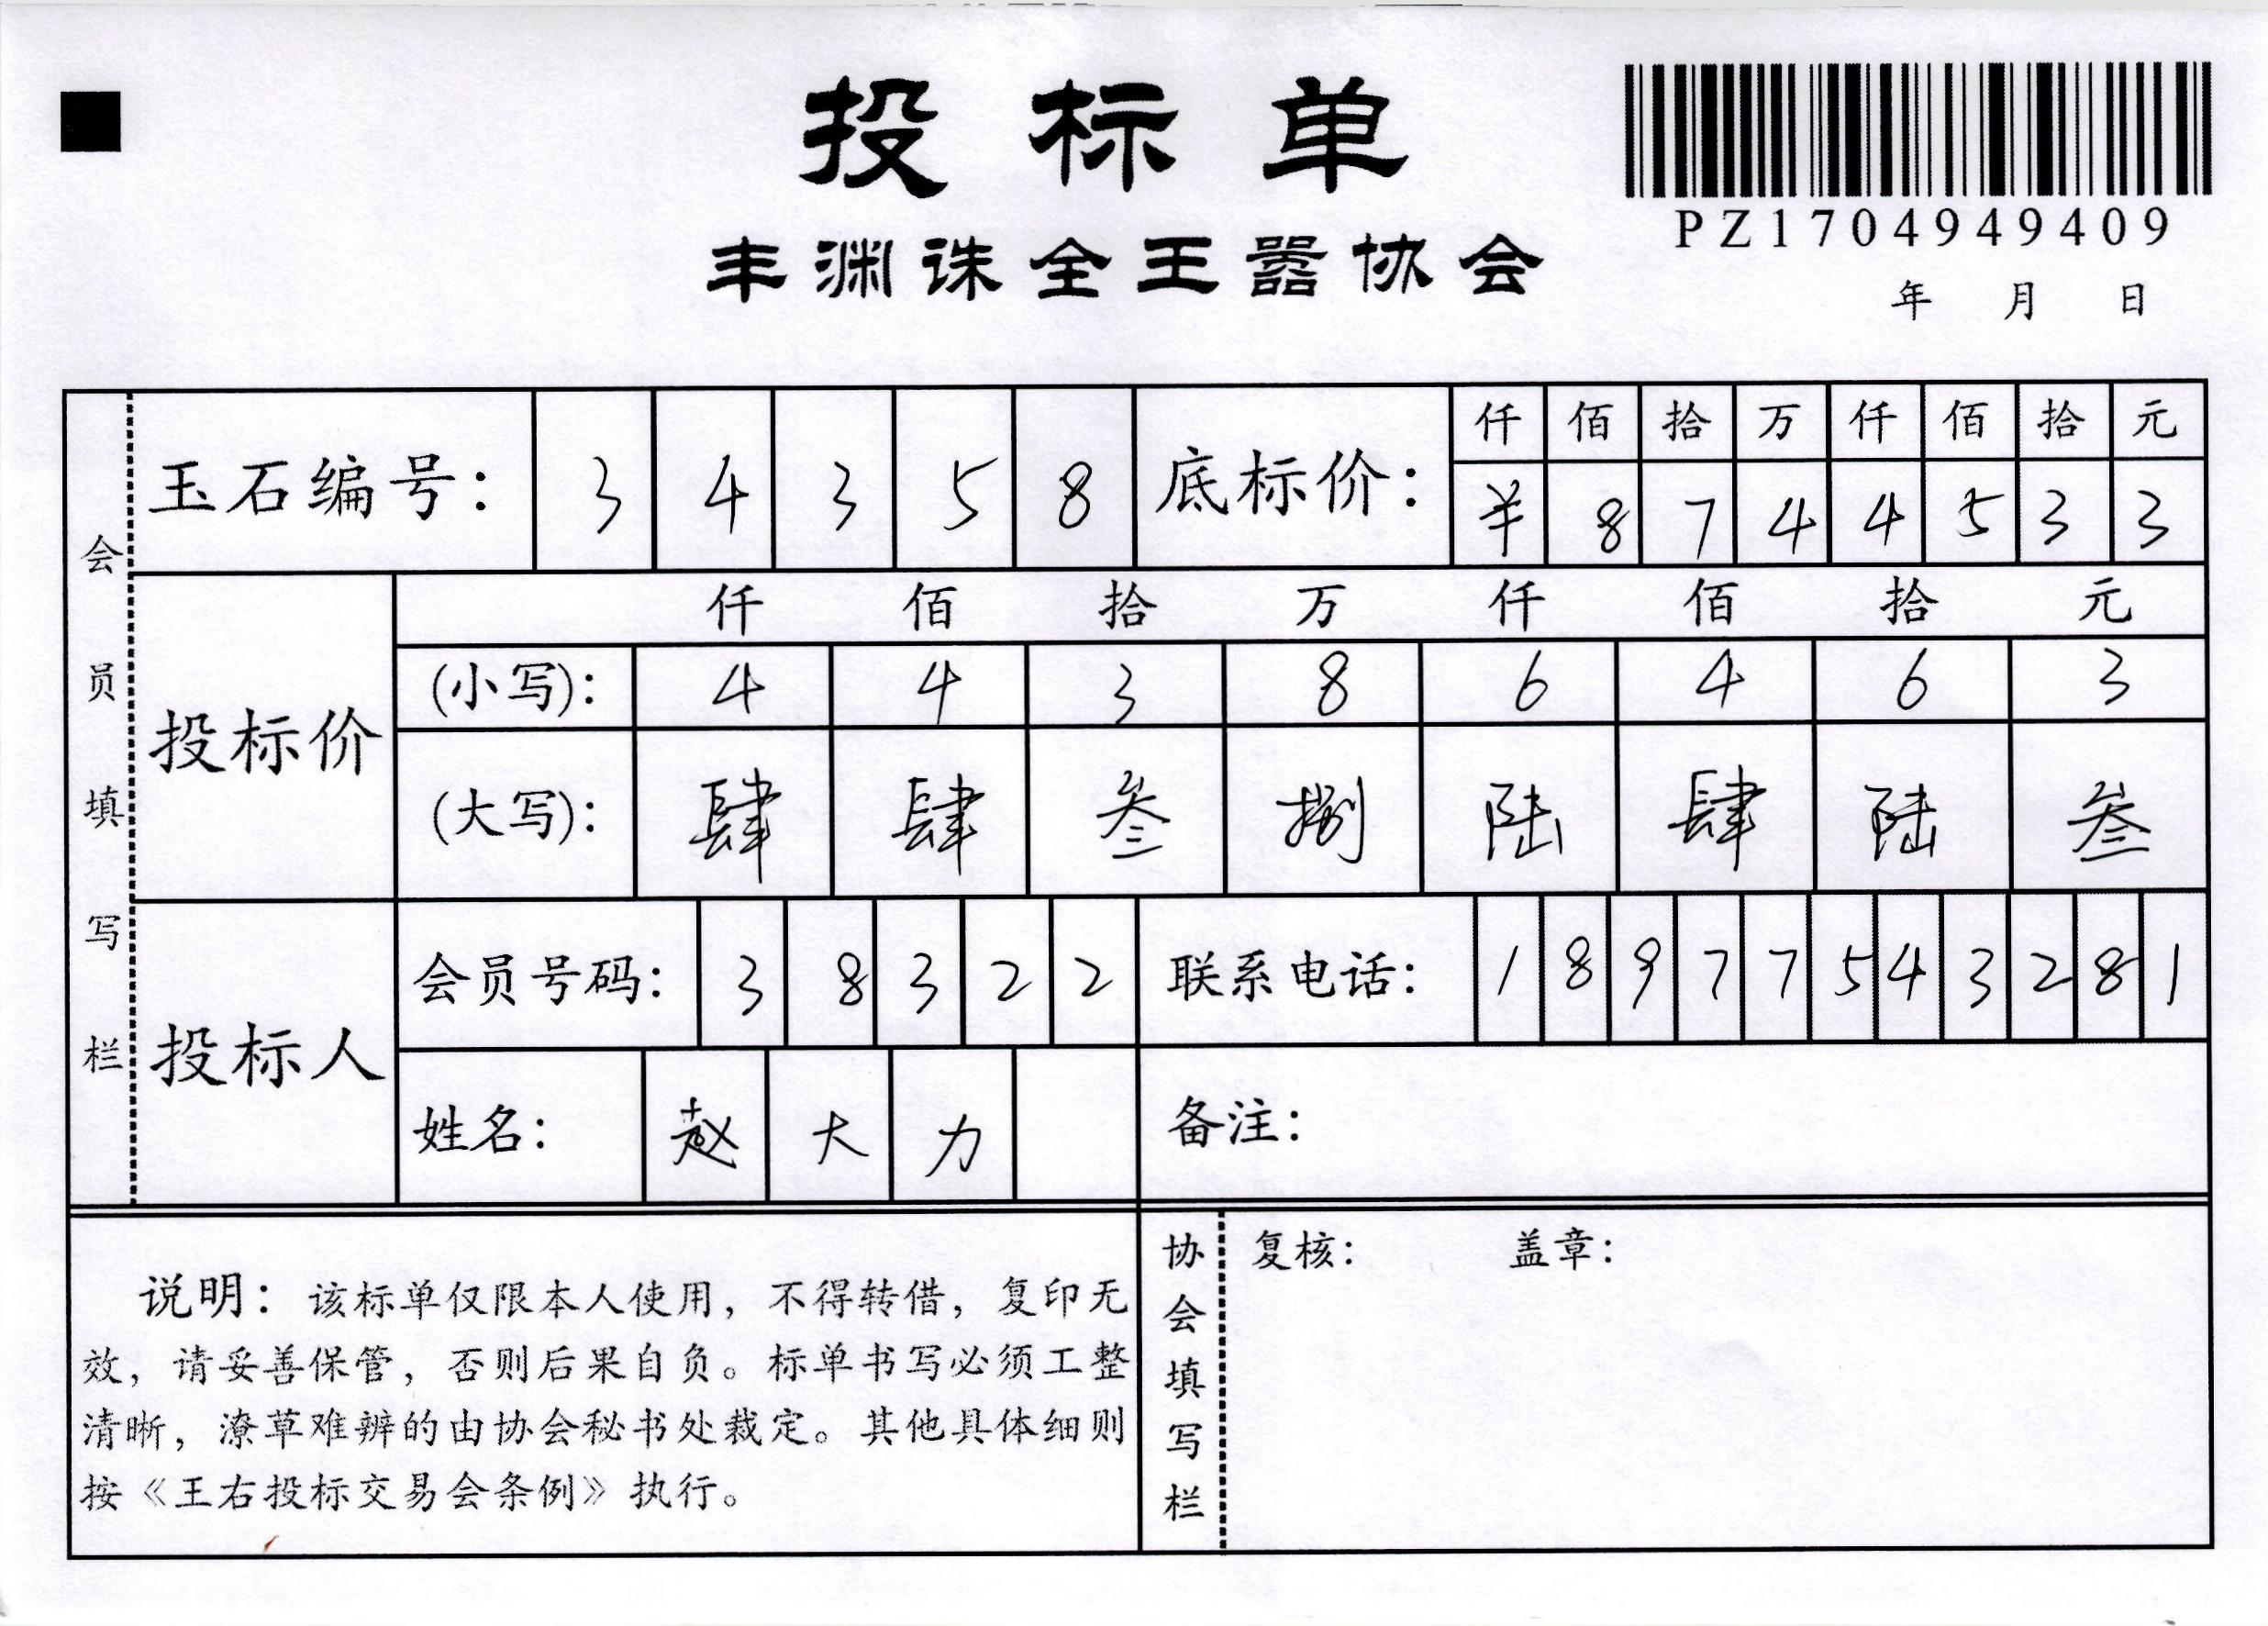 投标单
PZ1704949409
丰渊诛全王嚣协会
年 月 日
会员填写栏
玉石编号： 3 4 3 5 8 底标价： 仟 佰 拾 万 仟 佰 拾 元
¥ 8 7 4 4 5 3 3
投标价
仟 佰 拾 万 仟 佰 拾 元
(小写)： 4 4 3 8 6 4 6 3
(大写)： 肆 肆 叁 捌 陆 肆 陆 叁
投标人
会员号码： 3 8 3 2 2 联系电话： 1 8 9 7 7 5 4 3 2 8 1
姓名： 赵 大 力 备注：
说明：该标单仅限本人使用，不得转借，复印无
效，请妥善保管，否则后果自负。标单书写必须工整
清晰，潦草难辨的由协会秘书处裁定。其他具体细则
按《王右投标交易会条例》执行。
协会填写栏
复核： 盖章：